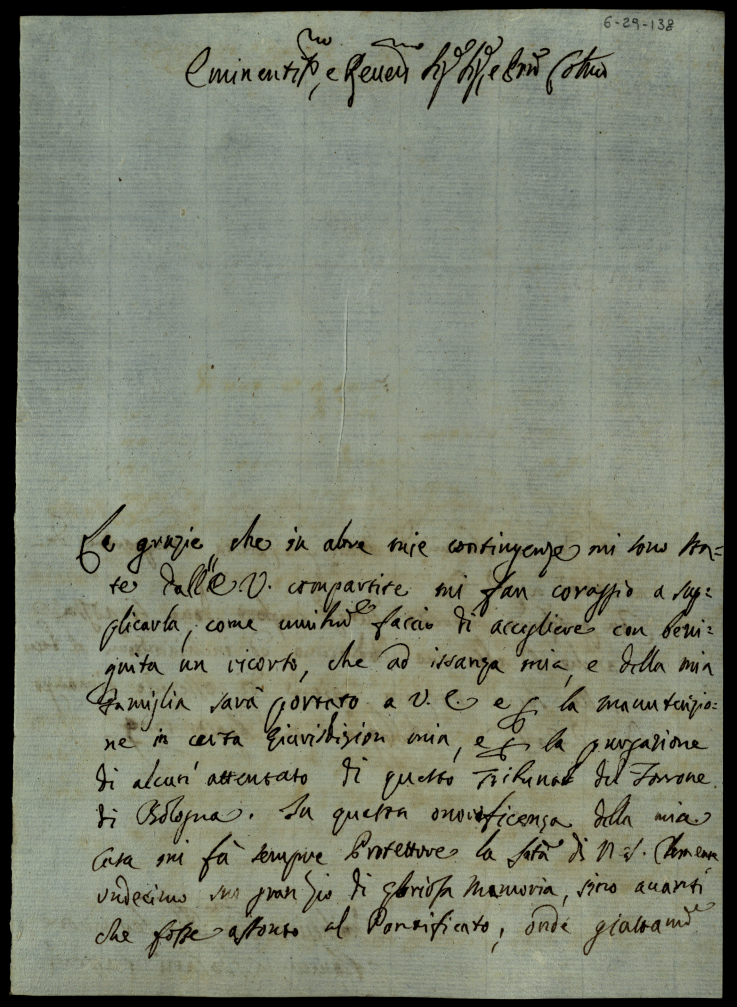 6-29-138
Eminentis.mo, e Reueren.mo Sig.r Sig.r, e Pron Colmo
Le grazie, che in altre mie contingenze mi sono sta=
te dall'E. V. compartite mi fan coraggio a sup=
plicarla, come umilm.e faccio di accogliere con beni=
gnità un ricorso, che ad istanza mia, e della mia
Famiglia sarà portato a V. E. e per la manutenzio=
ne in certa Giurisdizion mia, e per la purgazione
di alcun' attentato di questo Tribunal del Torrone
di Bologna. In questa onorificenza della mia
Casa mi fà sempre Protettore la San.tà di N. S. Clemente
undecimo suo gran Zio di gloriosa memoria, sino auanti
che fosse assonto al Pontificato, onde